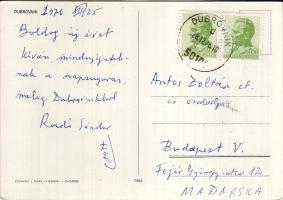 DUBROVNIK
1976 XII/25
Boldog új évet
kíván mindnyájatok-
nak a napsugaras,
meleg Dubrovnikból
Radó Sándor
DUBROVNIK
Antos Zoltán et.
és családja
Budapest V.
Fejér György-utca 12
MAĐARSKA
ZAGREB